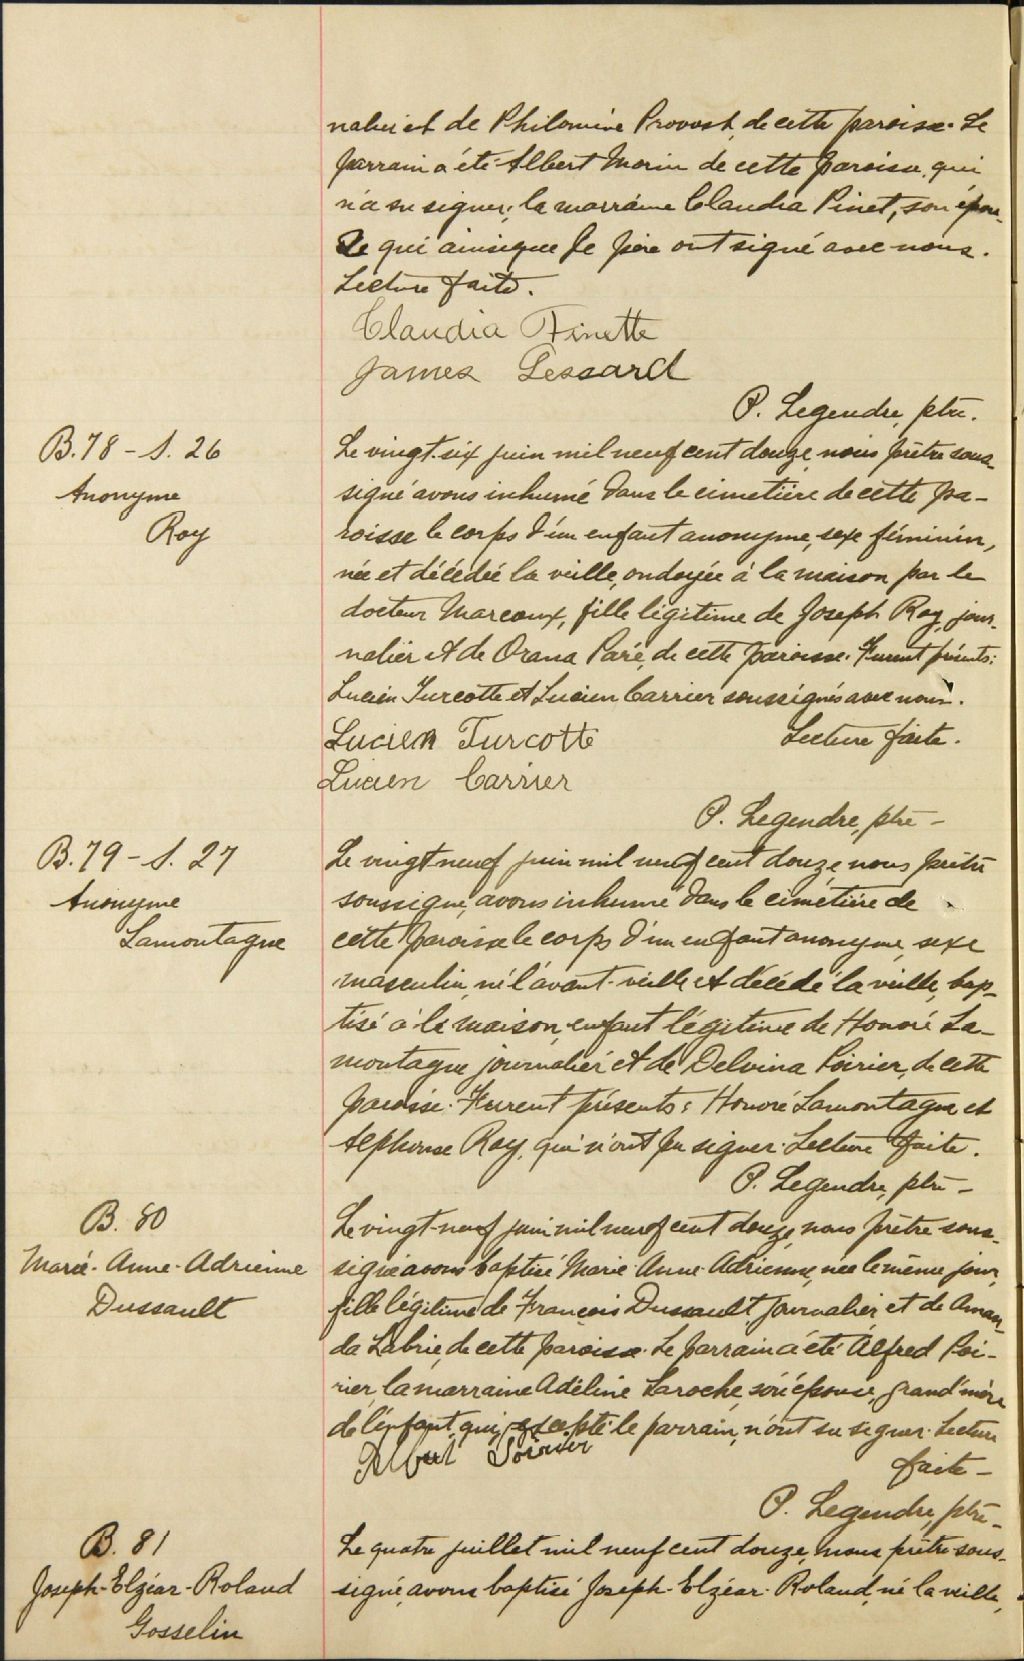 nalier et de Philomène Provost, de cette paroisse. Le
parrain a été Albert Morin de cette paroisse, qui
n'a su signer; la marraine Claudia Pinet, son épou-
se qui ainsique le père ont signé avec nous.
Lecture faite.
Claudia Finette
James Lessard
P. Legendre, ptre.
B. 78 - S. 26
Anonyme
Roy
Le vingt-six juin mil neuf cent douze, nous prêtre sous-
signé avons inhumé dans le cimetière de cette pa-
roisse le corps d'un enfant anonyme, sexe féminin,
née et décédée la veille, ondoyée à la maison par le
docteur Marcoux, fille légitime de Joseph Roy, jour-
nalier et de Orana Paré, de cette paroisse. Furent présents:
Lucien Turcotte et Lucien Carrier soussignés avec nous.
Lucien Turcotte Lecture faite.
Lucien Carrier
P. Legendre, ptre -
B. 79 - S. 27
Anonyme
Lamontagne
Le vingt neuf juin mil neuf cent douze nous prêtre
soussigné, avons inhumé dans le cimetière de
cette paroisse le corps d'un enfant anonyme, sexe
masculin, né l'avant-veille et décédé la veille, bap-
tisé à la maison, enfant légitime de Honoré La-
montagne journalier et de Delvina Poirier, de cette
paroisse. Furent présents: Honoré Lamontagne et
Alphonse Roy, qui n'ont pu signer. Lecture faite.
P. Legendre, ptre -
B. 80
Marie-Anne-Adrienne
Dussault
Le vingt-neuf juin mil neuf cent douze, nous prêtre sous-
signé avons baptisé Marie-Anne-Adrienne, née le même jour,
fille légitime de François Dussault, journalier et de Aman-
da Labrie, de cette paroisse. Le parrain a été Alfred Poi-
rier, la marraine Adéline Laroche, son épouse, grand'mère
de l'enfant, qui, excepté le parrain, n'ont su signer. Lecture
Poirier faite -
P. Legendre, ptre -
B. 81
Joseph-Elzéar-Roland
Gosselin
Le quatre juillet mil neuf cent douze, nous prêtre sous-
signé, avons baptisé Joseph-Elzéar-Roland, né la veille,